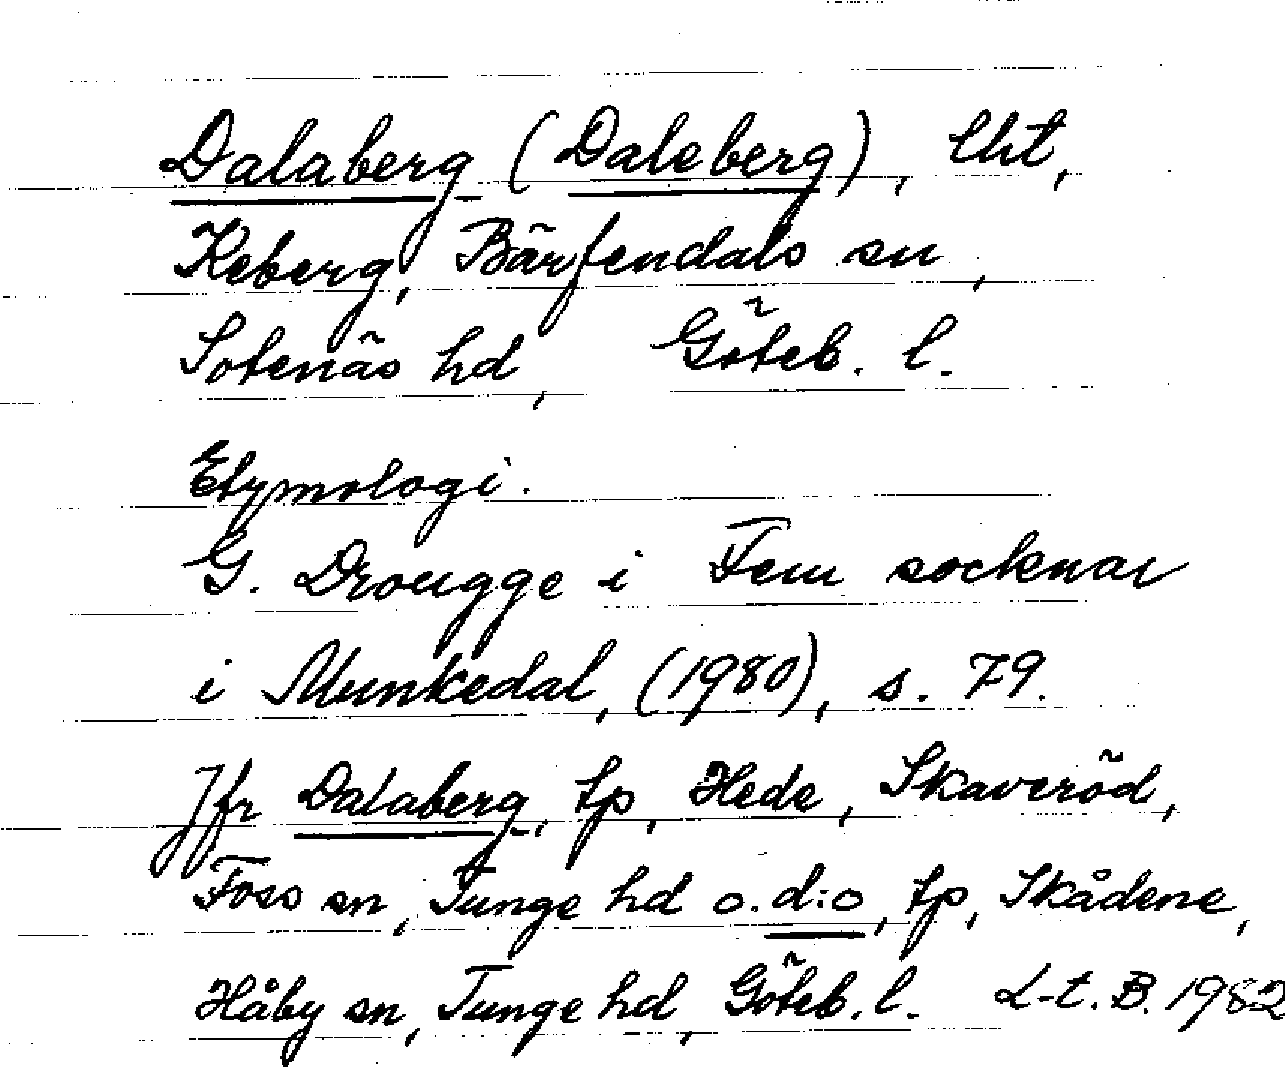 Dalaberg (Daleberg), lht,
Keberg, Bärfendals sn,
Sotenäs hd, Göteb. l.
Etymologi.
G. Drougge i Fem socknar
i Munkedal, (1980), s. 79.
Jfr Dalaberg, tp, Hede, Skaveröd,
Foss sn, Tunge hd o. d:o, tp, Skådene,
Håby sn, Tunge hd, Göteb. l. L-t. B. 1982